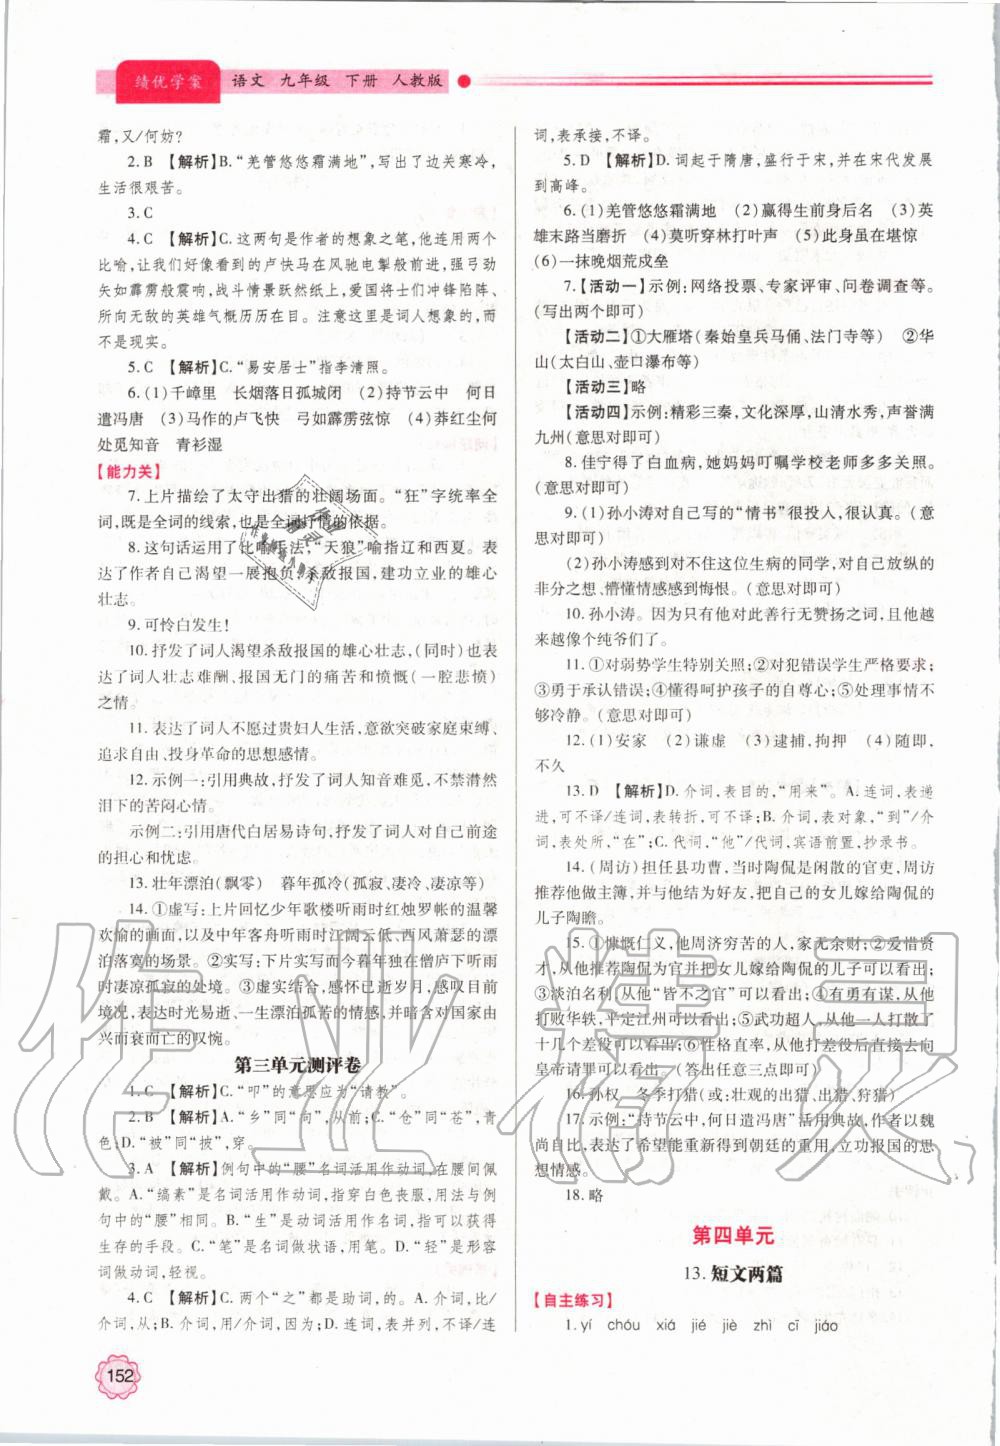 绩优学案 语文 九年级 下册 人教版
霜,又/何妨?
2. B 【解析】B.“羌管悠悠霜满地”,写出了边关寒冷,
生活很艰苦。
3. C
4. C 【解析】C.这两句是作者的想象之笔,他连用两个
比喻,让我们好像看到的卢快马在风驰电掣般前进,强弓劲
矢如霹雳般震响,战斗情景跃然纸上,爱国将士们冲锋陷阵、
所向无敌的英雄气概历历在目。注意这里是词人想象的,而
不是现实。
5. C 【解析】C.“易安居士”指李清照。
6. (1)千嶂里 长烟落日孤城闭 (2)持节云中 何日
遣冯唐 (3)马作的卢飞快 弓如霹雳弦惊 (4)莽红尘何
处觅知音 青衫湿
【能力关】
7. 上片描绘了太守出猎的壮阔场面。“狂”字统率全
词,既是全词的线索,也是全词抒情的依据。
8. 这句话运用了比喻手法,“天狼”喻指辽和西夏。表
达了作者自己渴望一展抱负,杀敌报国,建功立业的雄心
壮志。
9. 可怜白发生!
10. 抒发了词人渴望杀敌报国的雄心壮志,(同时)也表
达了词人壮志难酬、报国无门的悲愤之情(一腔悲愤)
之情。
11. 表达了词人不愿过贵妇人生活,意欲突破家庭束缚、
追求自由、投身革命的思想感情。
12. 示例一:引用典故,抒发了词人知音难觅,不禁潸然
泪下的苦闷心情。
示例二:引用唐代白居易诗句,抒发了词人对自己前途
的担心和忧虑。
13. 壮年漂泊(飘零) 暮年孤冷(孤寂、凄冷、凄凉等)
14. ①虚写:上片回忆少年歌楼听雨时红烛罗帐的温馨
欢愉的画面,以及中年客舟听雨时江阔云低、西风萧瑟的漂
泊落寞的场景。②实写:下片实写而今暮年在僧庐下听雨
时凄凉孤寂的处境。③虚实结合,感怀已逝岁月,感叹目前
境况,表达时光易逝、一生漂泊孤苦的情感,并暗含对国家由
兴而衰而亡的叹惋。
第三单元测评卷
1. C 【解析】C.“叩”的意思应为“请教”。
2. B 【解析】A.“乡”同“向”,从前;C.“仓”同“苍”,青
色;D.“被”同“披”,穿。
3. A 【解析】例句中的“腰”名词活用作动词,在腰间佩
戴。A.“缟素”是名词活用作动词,指穿白色丧服,用法与例
句中的“腰”相同。B.“生”是动词活用作名词,指可以获得
生存的手段。C.“笔”是名词做状语,用笔。D.“轻”是形容
词做动词,轻视。
4. C 【解析】C.两个“之”都是助词,的。A.介词,比/
介词,从;B.介词,用/介词,因;D.连词,表并列,不译/连
词,表承接,不译。
5. D 【解析】D.词起于隋唐,盛行于宋,并在宋代发展
到高峰。
6. (1)羌管悠悠霜满地 (2)赢得生前身后名 (3)英
雄末路当磨折 (4)莫听穿林打叶声 (5)此身虽在堪惊
(6)一抹晚烟荒戍垒
7.【活动一】示例:网络投票、专家评审、问卷调查等。
(写出两个即可)
【活动二】①大雁塔(秦始皇兵马俑、法门寺等) ②华
山(太白山、壶口瀑布等)
【活动三】略
【活动四】示例:精彩三秦,文化深厚,山清水秀,声誉满
九州(意思对即可)
8. 佳宁得了白血病,她妈妈叮嘱学校老师多多关照。
(意思对即可)
9. (1)孙小涛对自己写的“情书”很投入,很认真。(意
思对即可)
(2)孙小涛感到对不住这位生病的同学,对自己放纵的
非分之想、懵懂情感感到悔恨。(意思对即可)
10. 孙小涛。因为只有他对此善行无赞扬之词,且他越
来越像个纯爷们了。
11. ①对弱势学生特别关照;②对犯错误学生严格要求;
③勇于承认错误;④懂得呵护孩子的自尊心;⑤处理事情不
够冷静。(意思对即可)
12. (1)安家 (2)谦虚 (3)逮捕,拘押 (4)随即,
不久
13. D 【解析】D.介词,表目的,“用来”。A.连词,表递
进,可不译/连词,表转折,可不译;B.介词,表对象,“到”/介
词,表处所,“在”;C.代词,“他”/代词,宾语前置,抄录书。
14. (周访)担任县功曹,当时陶侃是闲散的官吏,周访
推荐他做主簿,并与他结为好友,把自己的女儿嫁给陶侃的
儿子陶瞻。
15. ①慷慨仁义,他周济穷苦的人,家无余财;②爱惜贤
才,从他推荐陶侃为官并把女儿嫁给陶侃的儿子可以看出;
③淡泊名利,从他“皆不之官”可以看出;④有勇有谋,从他
打败华轶,平定江州可以看出;⑤武功超人,从他一人打散了
十几个差役可以看出;⑥性格直率,从他实话实说,差点惹
皇帝请罪可以看出。(答出任意三点即可)
16. 孙权 冬季打猎(或:壮观的出猎、出猎、狩猎)
17. 示例:“持节云中,何日遣冯唐”活用典故,作者以魏
尚自比,表达了希望能重新得到朝廷的重用,立功报国的思
想情感。
18. 略
第四单元
13. 短文两篇
【自主练习】
1. yí chóu xiá jié jiè zhì cī jiáo
152
作业精灵